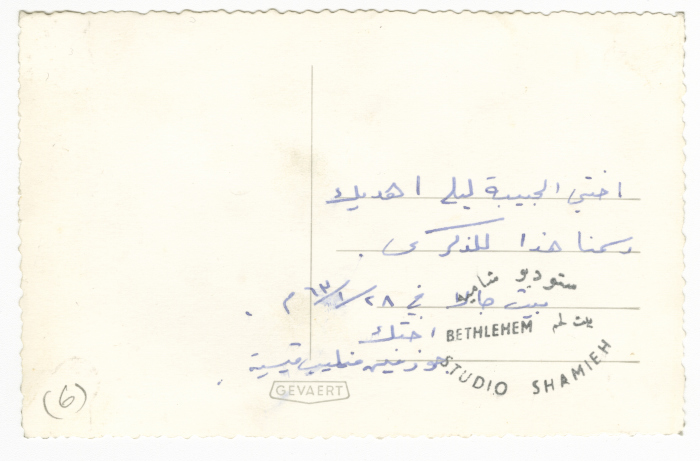 اختي الحبيبة ليلى اهديك
رسمنا هذا للذكرى .
بيت جالا في ٢٨/١/٦٣ م .
اختك
جوزفين قيسية
ستوديو شاميه
بيت لحم
BETHLEHEM
STUDIO SHAMIEH
GEVAERT
(6)